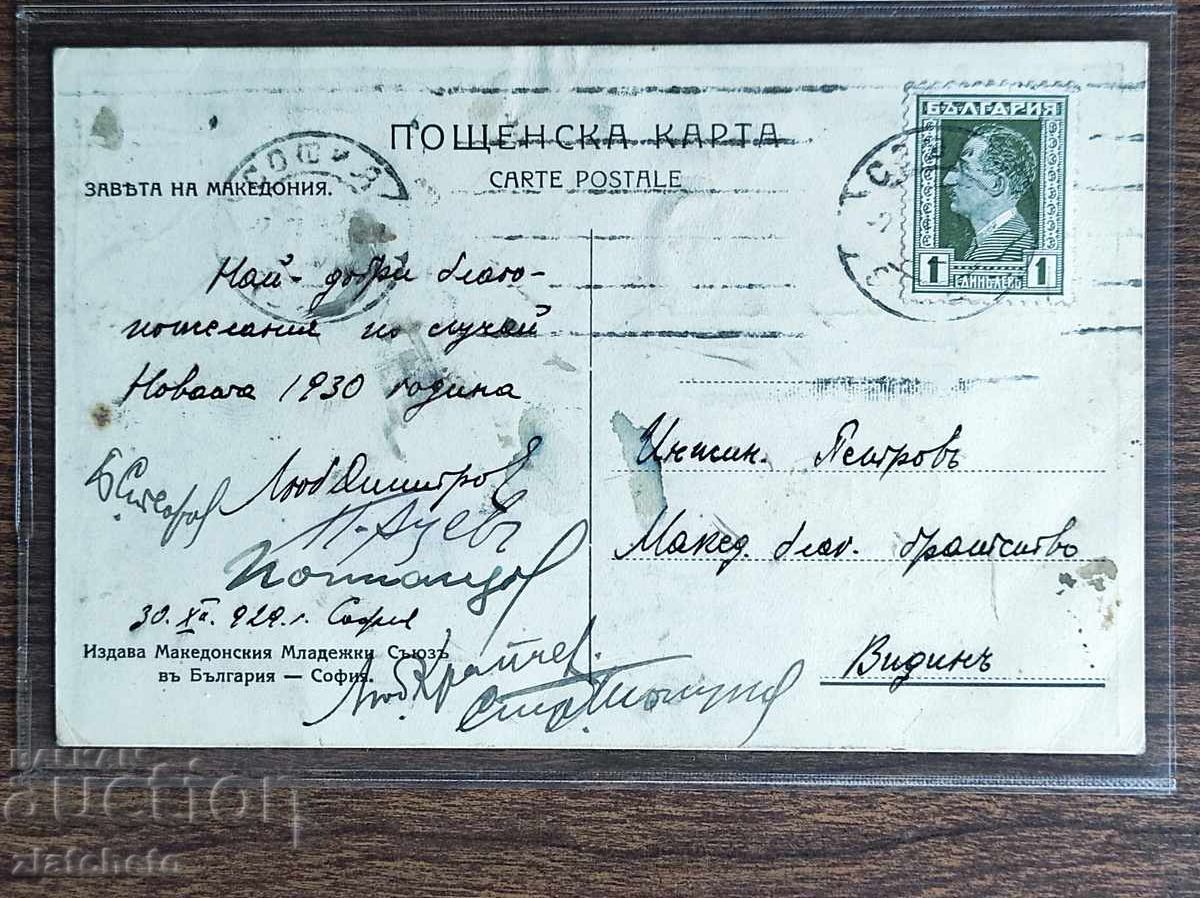 ПОЩЕНСКА КАРТА
CARTE POSTALE
ЗАВѢТА НА МАКЕДОНИЯ.
СОФИЯ
БЪЛГАРИЯ
1 ЕДИНЪ ЛЕВЪ 1
Най-добри благо-
пожелания по случай
Новата 1930 година
Люб Димитров
30. XII. 929 г. София
Издава Македонския Младежки Съюзъ
въ България — София.
Люб. Крапчев.
Инжин. Петровъ
Макед. благ. братство
Видинъ
BALKAN
auction
zlatcheto